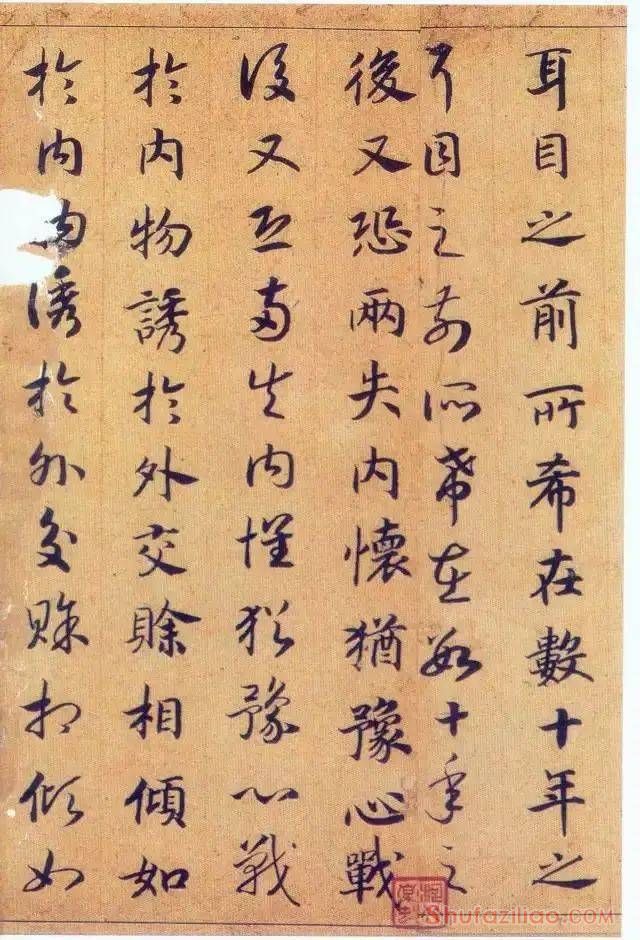 耳目之前所希在數十年之
耳目之前所希在數十年之
後又恐兩失內懷猶豫心戰
後又恐兩失內懷猶豫心戰
於內物誘於外交賒相傾如
於內物誘於外交賒相傾如
Shufaziliao.com